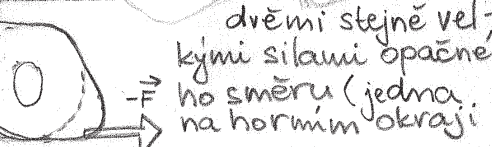 dvěmi stejně vel-
kými silami opačné
-F ho směru (jedna
na horním okraji